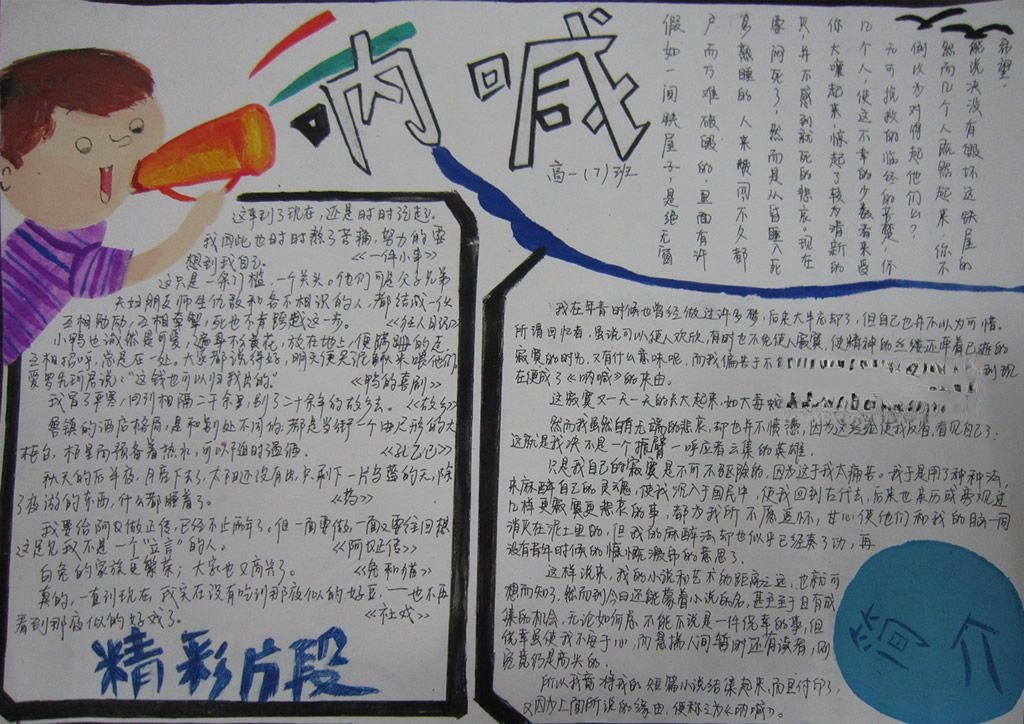 呐喊
高一(7)班
假如一间铁屋子,是绝无窗
户而万难破毁的,里面有许
多熟睡的人,不久都
要闷死了,然而是从昏睡入死
灭,并不感到就死的悲哀。现在
你大嚷起来,惊起了较为清新的
几个人,使这不幸的少数者来受
无可挽救的临终的苦楚,你
倒以为对得起他们么?
然而几个人既然起来,你不
能说决没有毁坏这铁屋的
希望。
这事到了现在,还是时时记起。
我因此也时时熬了苦痛,努力的要
想到我自己。 《一件小事》
这只是一条门槛,一个关头。他们可是父子兄弟
夫妇朋友师生仇敌和各不相识的人,都结成一伙
互相勉励,互相牵掣,死也不肯跨过这一步。 《狂人日记》
小鸭也诚然是可爱,遍身松花黄,放在地上,便蹒跚的走,
互相招呼,总是在一处。大家都说得好,明天便买泥鳅来喂他们
爱罗先珂君说:“这钱也可以归我出的。” 《鸭的喜剧》
我冒了严寒,回到相隔二千余里,别了二十余年的故乡去。 《故乡》
鲁镇的酒店格局,是和别处不同的:都是当街一个曲尺形的大
柜台,柜里面预备着热水,可以随时温酒。 《孔乙己》
秋天的后半夜,月亮下去了,太阳还没有出,只剩下一片乌蓝的天,除
了夜游的东西,什么都睡着了。 《药》
我要给阿Q做正传,已经不止两年了。但一面要做,一面又要往回想
这足见我不是一个“立言”的人。 《阿Q正传》
白兔的家族更繁荣;大家也又高兴了。 《兔和猫》
真的,一直到现在,我实在没有吃到那夜似的好豆,——也不再
看到那夜似的好戏了。 《社戏》
精彩片段
我在年青时候也曾经做过许多梦,后来大半忘却了,但自己也并不以为可惜。
所谓回忆者,虽说可以使人欢欣,有时也不免使人寂寞,使精神的丝缕还牵着已逝的
寂寞的时光,又有什么意味呢,而我偏苦于不 到现
在便成了《呐喊》的来由。
这寂寞又一天一天的长大起来,如大毒蛇
然而我虽然自有无端的悲哀,却也并不愤懑,因为这经验使我反省,看见自己了:
这就是我决不是一个振臂一呼应者云集的英雄。
只是我自己的寂寞是不可不驱除的,因为这于我太痛苦。我于是用了种种法,
来麻醉自己的灵魂,使我沉入于国民中,使我回到古代去,后来也亲历或旁观过
几样更寂寞更悲哀的事,都为我所不愿追怀,甘心使他们和我的脑一同
消灭在泥土里的,但我的麻醉法却也似乎已经奏了功,再
没有青年时候的慷慨激昂的意思了。
这样说来,我的小说和艺术的距离之远,也就可
想而知了,然而到今日还能蒙着小说的名,甚至于且有成
集的机会,无论如何总不能不说是一件侥幸的事,但
侥幸虽使我不安于心,而悬揣人间暂时还有读者,则
究竟仍是高兴的。
所以我竟将我的短篇小说结集起来,而且付印了,
又因为上面所说的缘由,便称之为《呐喊》。
简介